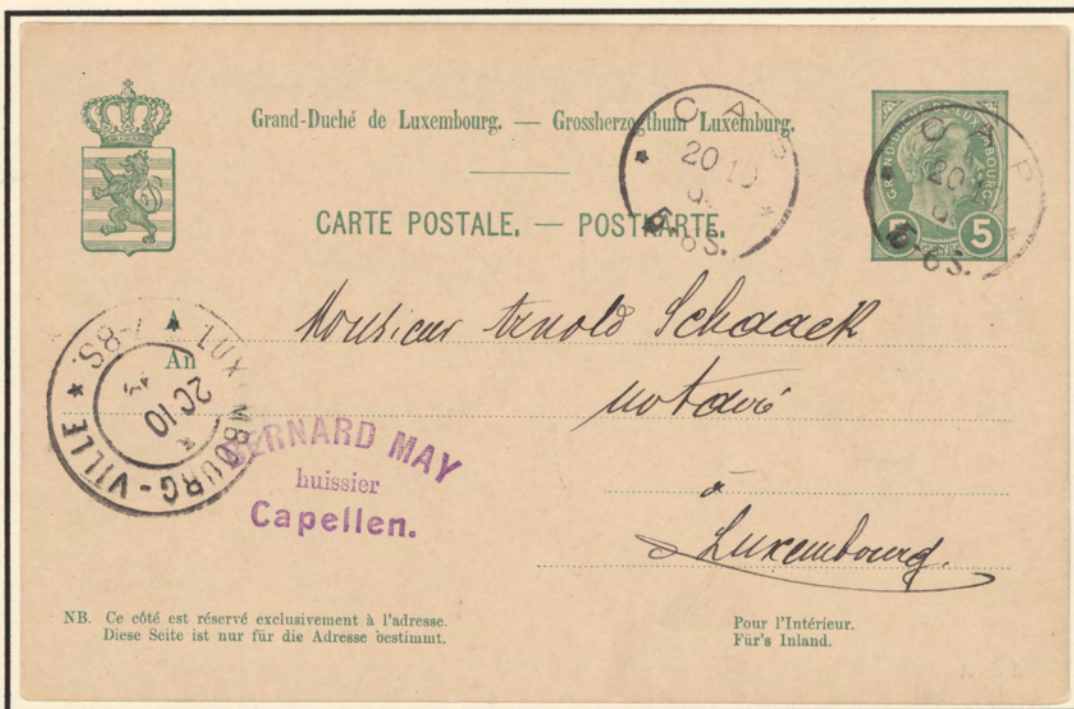 Grand-Duché de Luxembourg. — Grossherzogthum Luxemburg.
CARTE POSTALE. — POSTKARTE.
GRAND DUCHÉ DE LUXEMBOURG
5 5
CAP
20 10
5-6S.
CAP
5-6S.
A
An
Monsieur Arnold Schaack
notaire
à
Luxembourg.
LUXEMBOURG-VILLE
7-8S.
20 10
BERNARD MAY
huissier
Capellen.
NB. Ce côté est réservé exclusivement à l'adresse.
Diese Seite ist nur für die Adresse bestimmt.
Pour l'Intérieur.
Für's Inland.